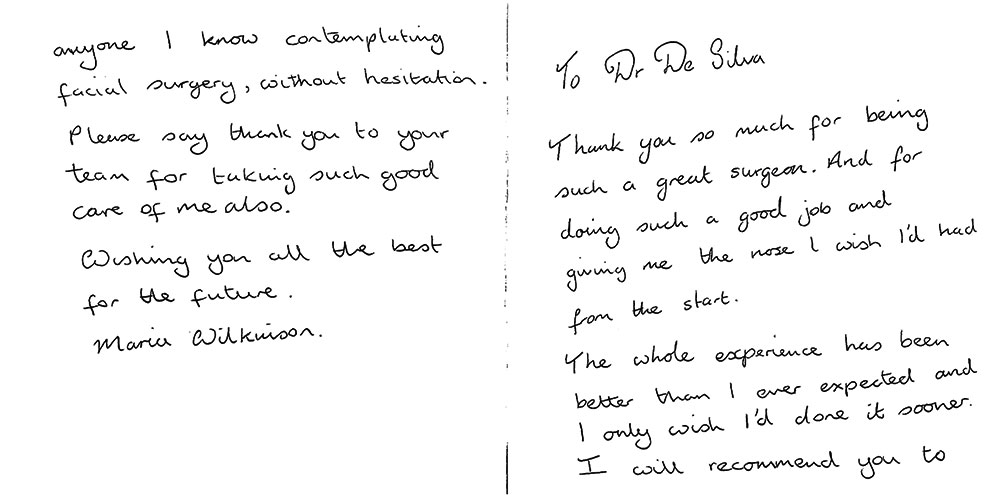 To Dr De Silva
Thank you so much for being
such a great surgeon. And for
doing such a good job and
giving me the nose I wish I'd had
from the start.
The whole experience has been
better than I ever expected and
I only wish I'd done it sooner.
I will recommend you to
anyone I know contemplating
facial surgery, without hesitation.
Please say thank you to your
team for taking such good
care of me also.
Wishing you all the best
for the future.
Maria Wilkinson.